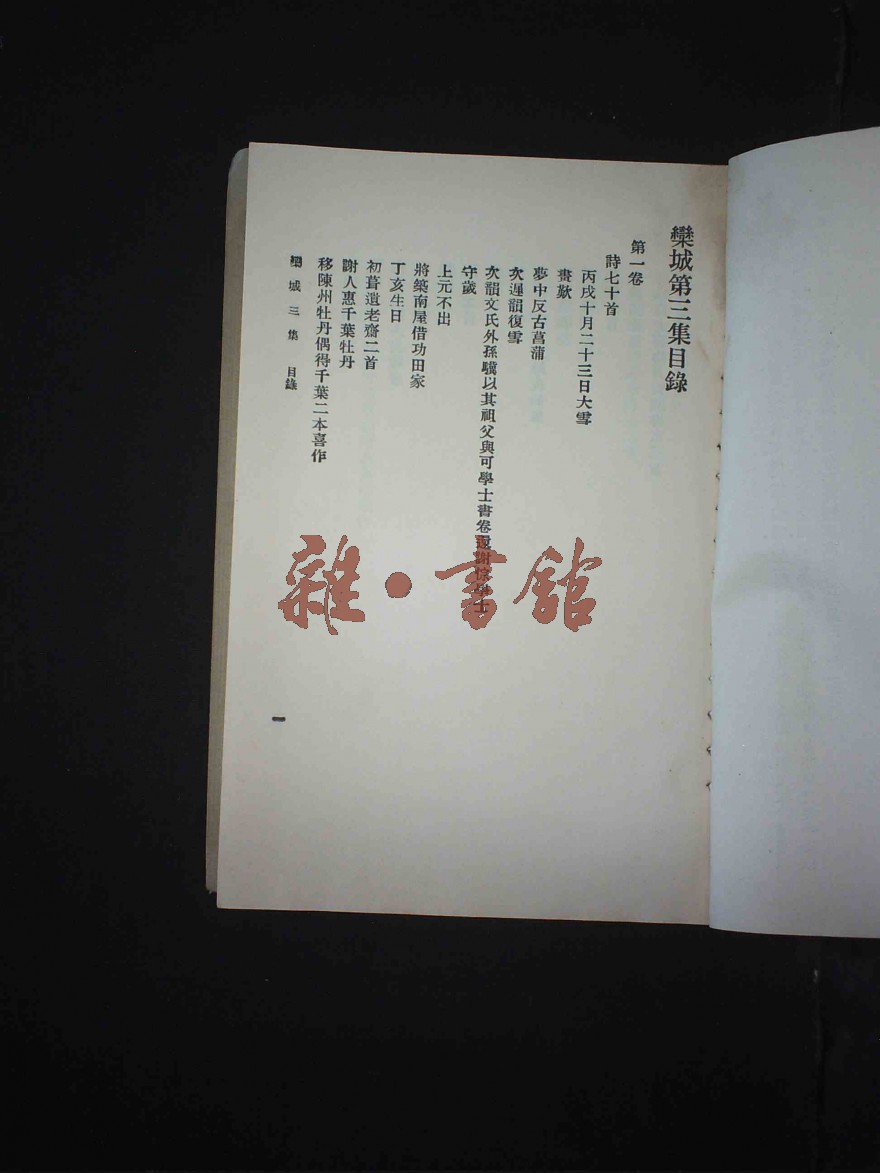 欒城第三集目錄
第一卷
詩七十首
丙戌十月二十三日大雪
畫歎
夢中反古菖蒲
次遲韻復雪
次韻文氏外孫驥以其祖父與可學士書卷還謝悰學士
守歲
上元不出
將築南屋借功田家
丁亥生日
初葺遺老齋二首
謝人惠千葉牡丹
移陳州牡丹偶得千葉二本喜作
欒城三集 目錄
一
雜·書館